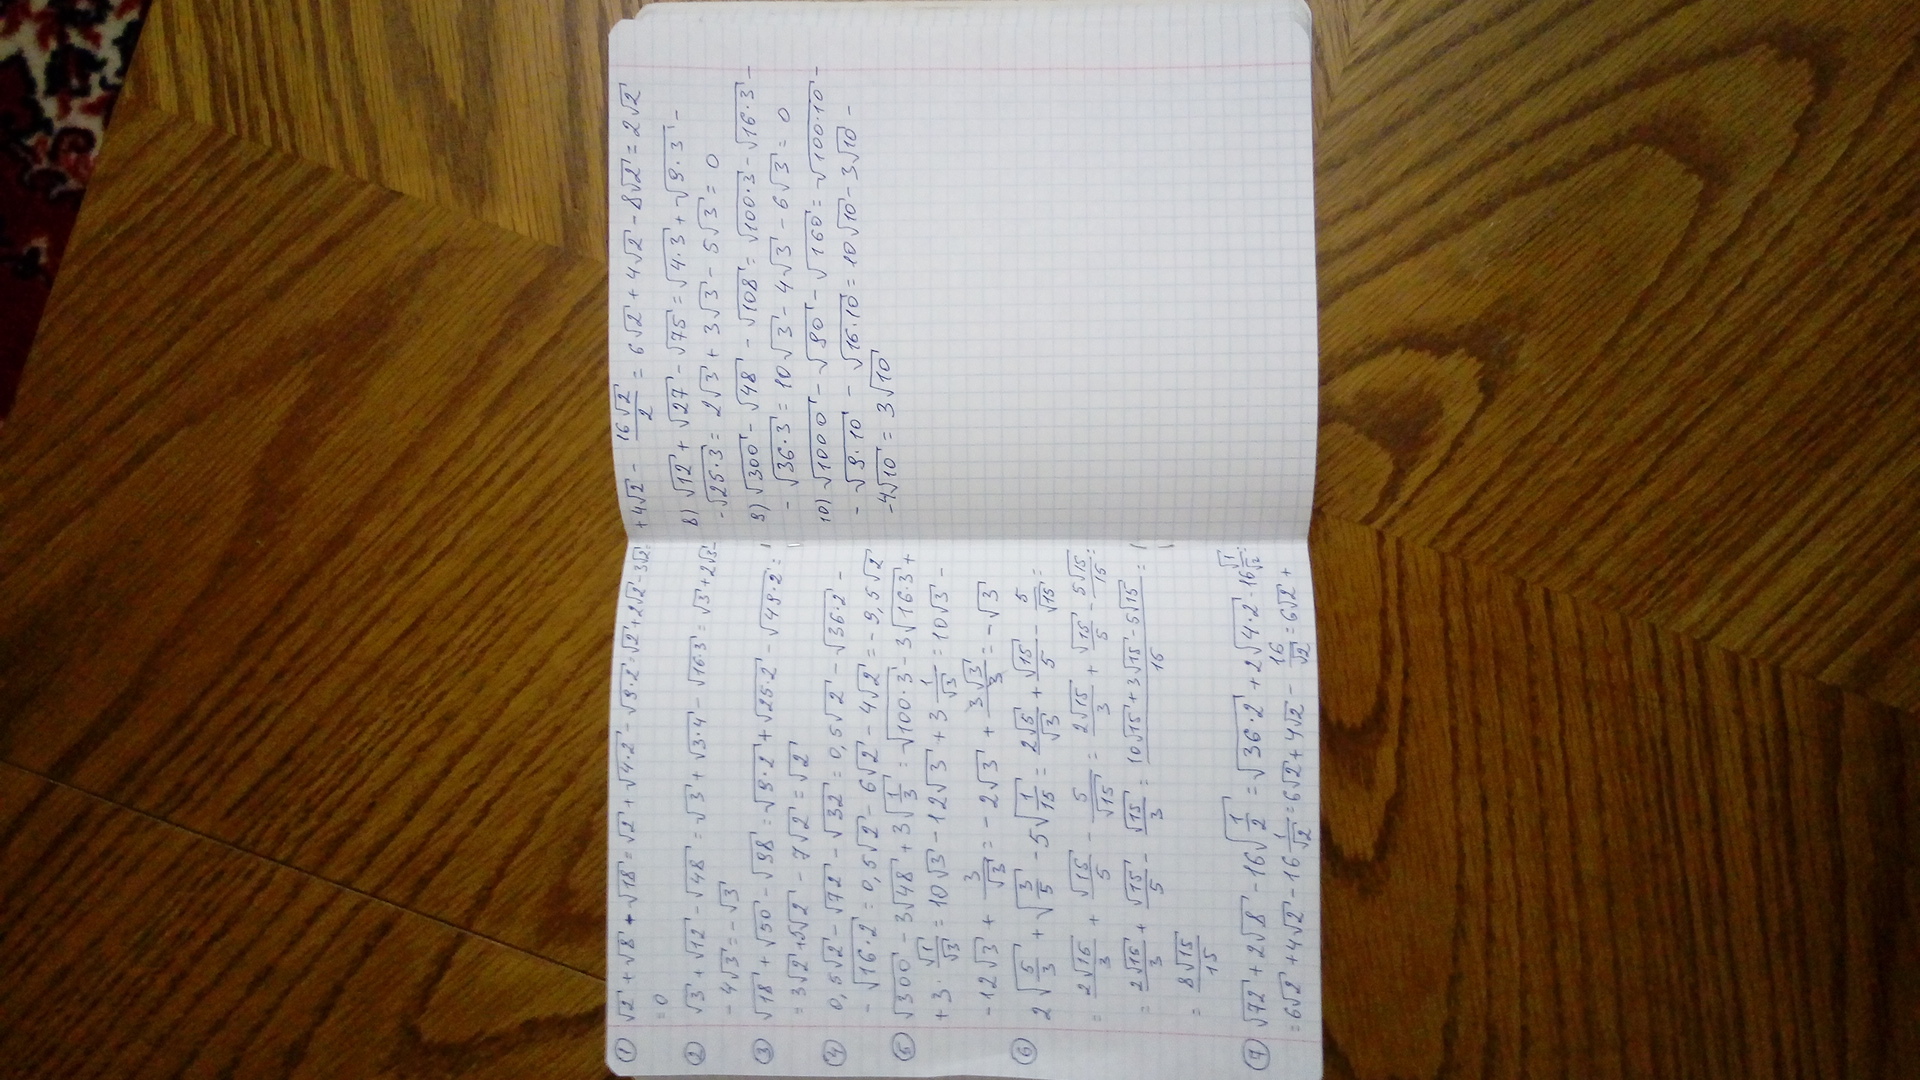 ① √2 + √8 - √18 = √2 + √4·2 - √9·2 = √2 + 2√2 - 3√2 =
= 0
② √3 + √12 - √48 = √3 + √3·4 - √16·3 = √3 + 2√3 -
- 4√3 = - √3
③ √18 + √50 - √98 = √9·2 + √25·2 - √49·2 =
= 3√2 + 5√2 - 7√2 = √2
④ 0,5√2 - √72 - √32 = 0,5√2 - √36·2 -
- √16·2 = 0,5√2 - 6√2 - 4√2 = - 9,5√2
⑤ √300 - 3√48 + 3√1/3 = √100·3 - 3√16·3 +
+ 3·√1/√3 = 10√3 - 12√3 + 3 1/√3 = 10√3 -
- 12√3 + 3/√3 = - 2√3 + 3√3/3 = - √3
⑥ 2√5/3 + √3/5 - 5√1/15 = 2√5/√3 + √15/5 - 5/√15 =
= 2√15/3 + √15/5 - 5/√15 = 2√15/3 + √15/5 - 5√15/15 =
= 2√15/3 + √15/5 - √15/3 = 10√15 + 3√15 - 5√15/15 =
= 8√15/15
⑦ √72 + 2√8 - 16√1/2 = √36·2 + 2√4·2 - 16√1/√2 =
= 6√2 + 4√2 - 16 1/√2 = 6√2 + 4√2 - 16/√2 = 6√2 +
+ 4√2 - 16√2/2 = 6√2 + 4√2 - 8√2 = 2√2
8) √12 + √27 - √75 = √4·3 + √9·3 -
- √25·3 = 2√3 + 3√3 - 5√3 = 0
9) √300 - √48 - √108 = √100·3 - √16·3 -
- √36·3 = 10√3 - 4√3 - 6√3 = 0
10) √1000 - √90 - √160 = √100·10 -
- √9·10 - √16·10 = 10√10 - 3√10 -
- 4√10 = 3√10